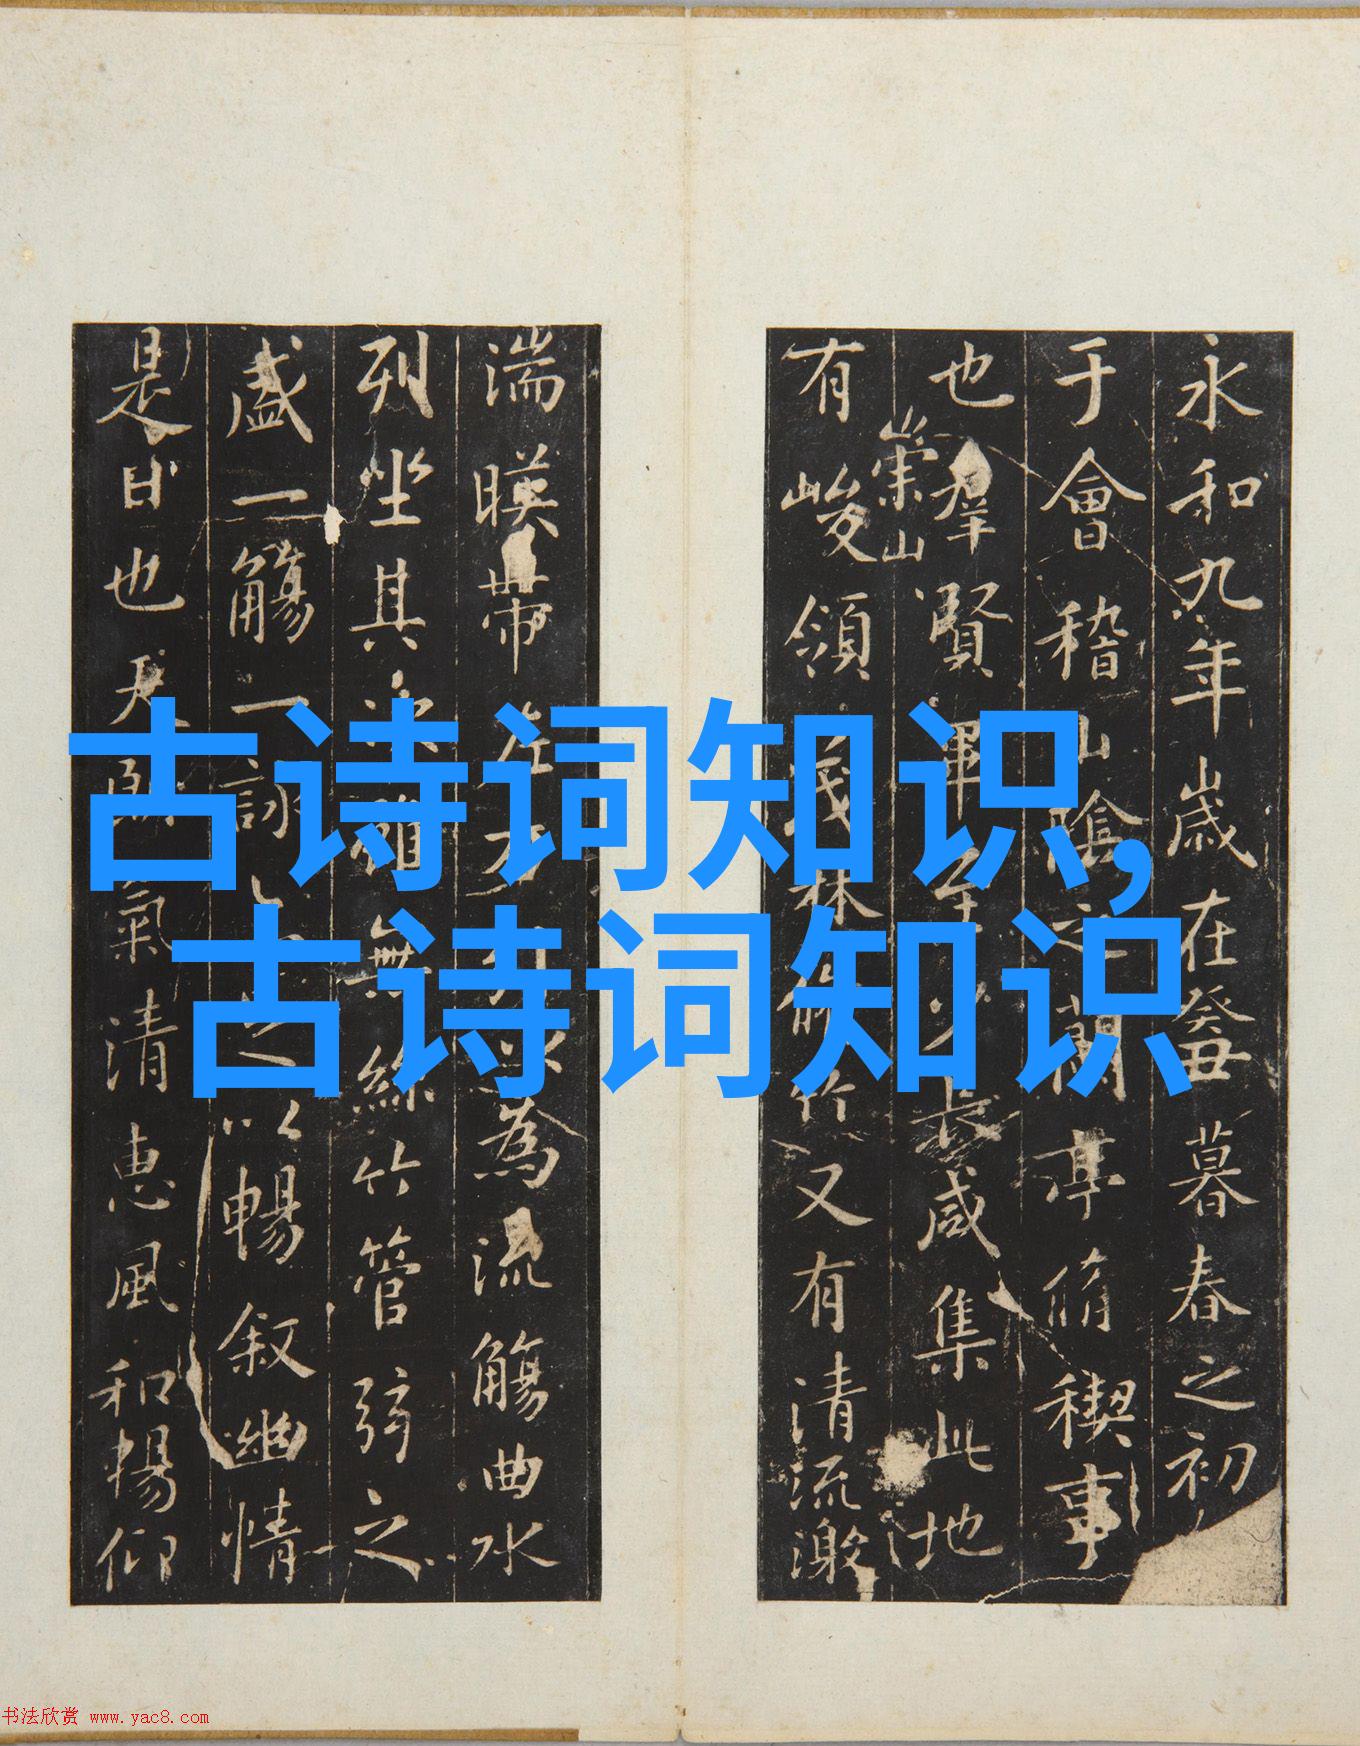 古诗词知识,
古诗词知识
永和九年歲在癸丑暮春之初
于會稽山陰之蘭亭脩禊事
也羣賢畢至少長咸集此地
有崇山峻領茂林脩竹又有清流激
湍暎帶左右引以為流觴曲水
列坐其次雖無絲竹管弦之
盛一觴一詠亦足以暢叙幽情
是日也天朗氣清惠風和暢仰
书法欣赏 www.yac8.com